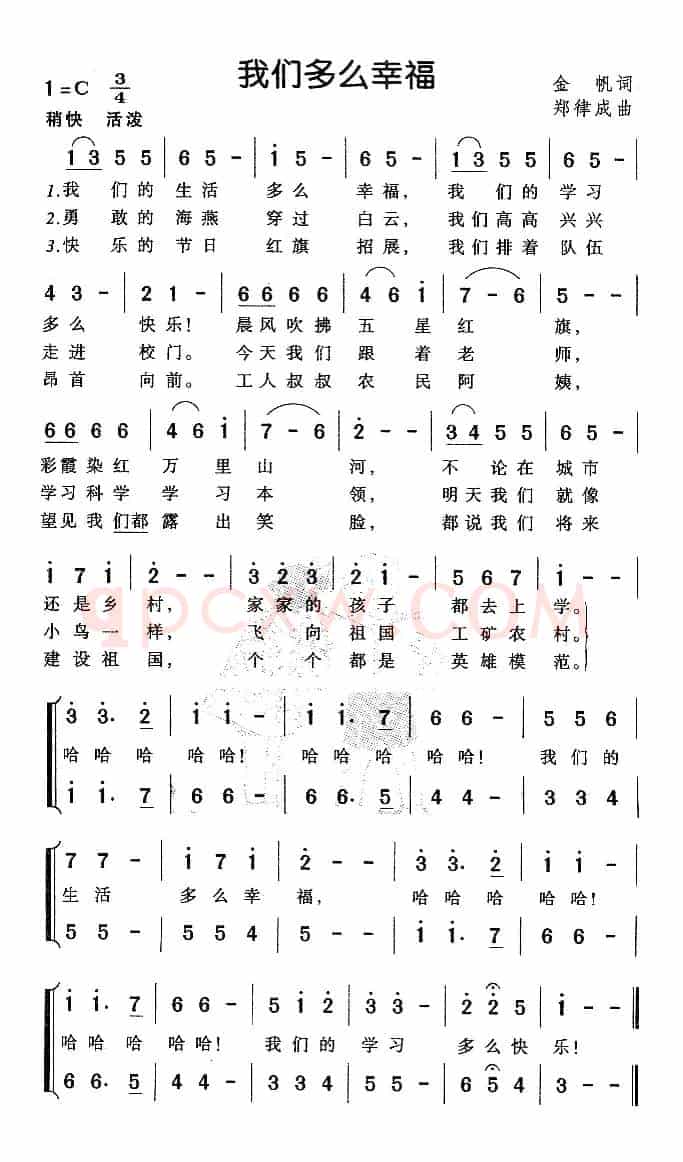 我们多么幸福
1=C 3/4
金 帆词
郑律成曲
稍快 活泼
1 3 5 5 | 6 5 - | i 5 - | 6 5 - | 1 3 5 5 | 6 5 - |
1.我 们的 生活 多么 幸福, 我 们的 学习
2.勇 敢的 海燕 穿过 白云, 我们高高 兴兴
3.快 乐的 节日 红旗 招展, 我们排着 队伍
4 3 - | 2 1 - | 6 6 6 6 | 4 6 i | 7 - 6 | 5 - - |
多么 快乐! 晨风吹拂 五 星 红 旗,
走进 校门。 今天我们 跟 着 老 师,
昂首 向前。 工人叔叔 农 民 阿 姨,
6 6 6 6 | 4 6 i | 7 - 6 | 2̇ - - | 3 4 5 5 | 6 5 - |
彩霞染红 万 里 山 河, 不 论在 城市
学习科学 学 习 本 领, 明天我们 就像
望见我们都 露 出 笑 脸, 都说我们 将来
i 7 i | 2̇ - - | 3̇ 2̇ 3̇ | 2̇ i - | 5 6 7 | i - - |
还是乡 村, 家家的 孩子 都去上 学。
小鸟一 样, 飞 向 祖国 工矿农 村。
建设祖 国, 个 个 都是 英雄模 范。
qpcxw.COM
3̇ 3̇. 2̇ | i i - | i i. 7 | 6 6 - | 5 5 6 |
哈哈 哈 哈哈! 哈哈 哈 哈哈! 我们的
i i. 7 | 6 6 - | 6 6. 5 | 4 4 - | 3 3 4 |
7 7 - | i 7 i | 2̇ - - | 3̇ 3̇. 2̇ | i i - |
生活 多么幸 福, 哈哈 哈 哈哈!
5 5 - | 5 5 4 | 5 - - | i i. 7 | 6 6 - |
i i. 7 | 6 6 - | 5 i 2̇ | 3̇ 3̇ - | 2̇ 2̇ 5 | i - - ‖
哈哈 哈 哈哈! 我们的 学习 多么快 乐!
6 6. 5 | 4 4 - | 3 3 4 | 5 5 - | 6 6 2 | 3 - - ‖